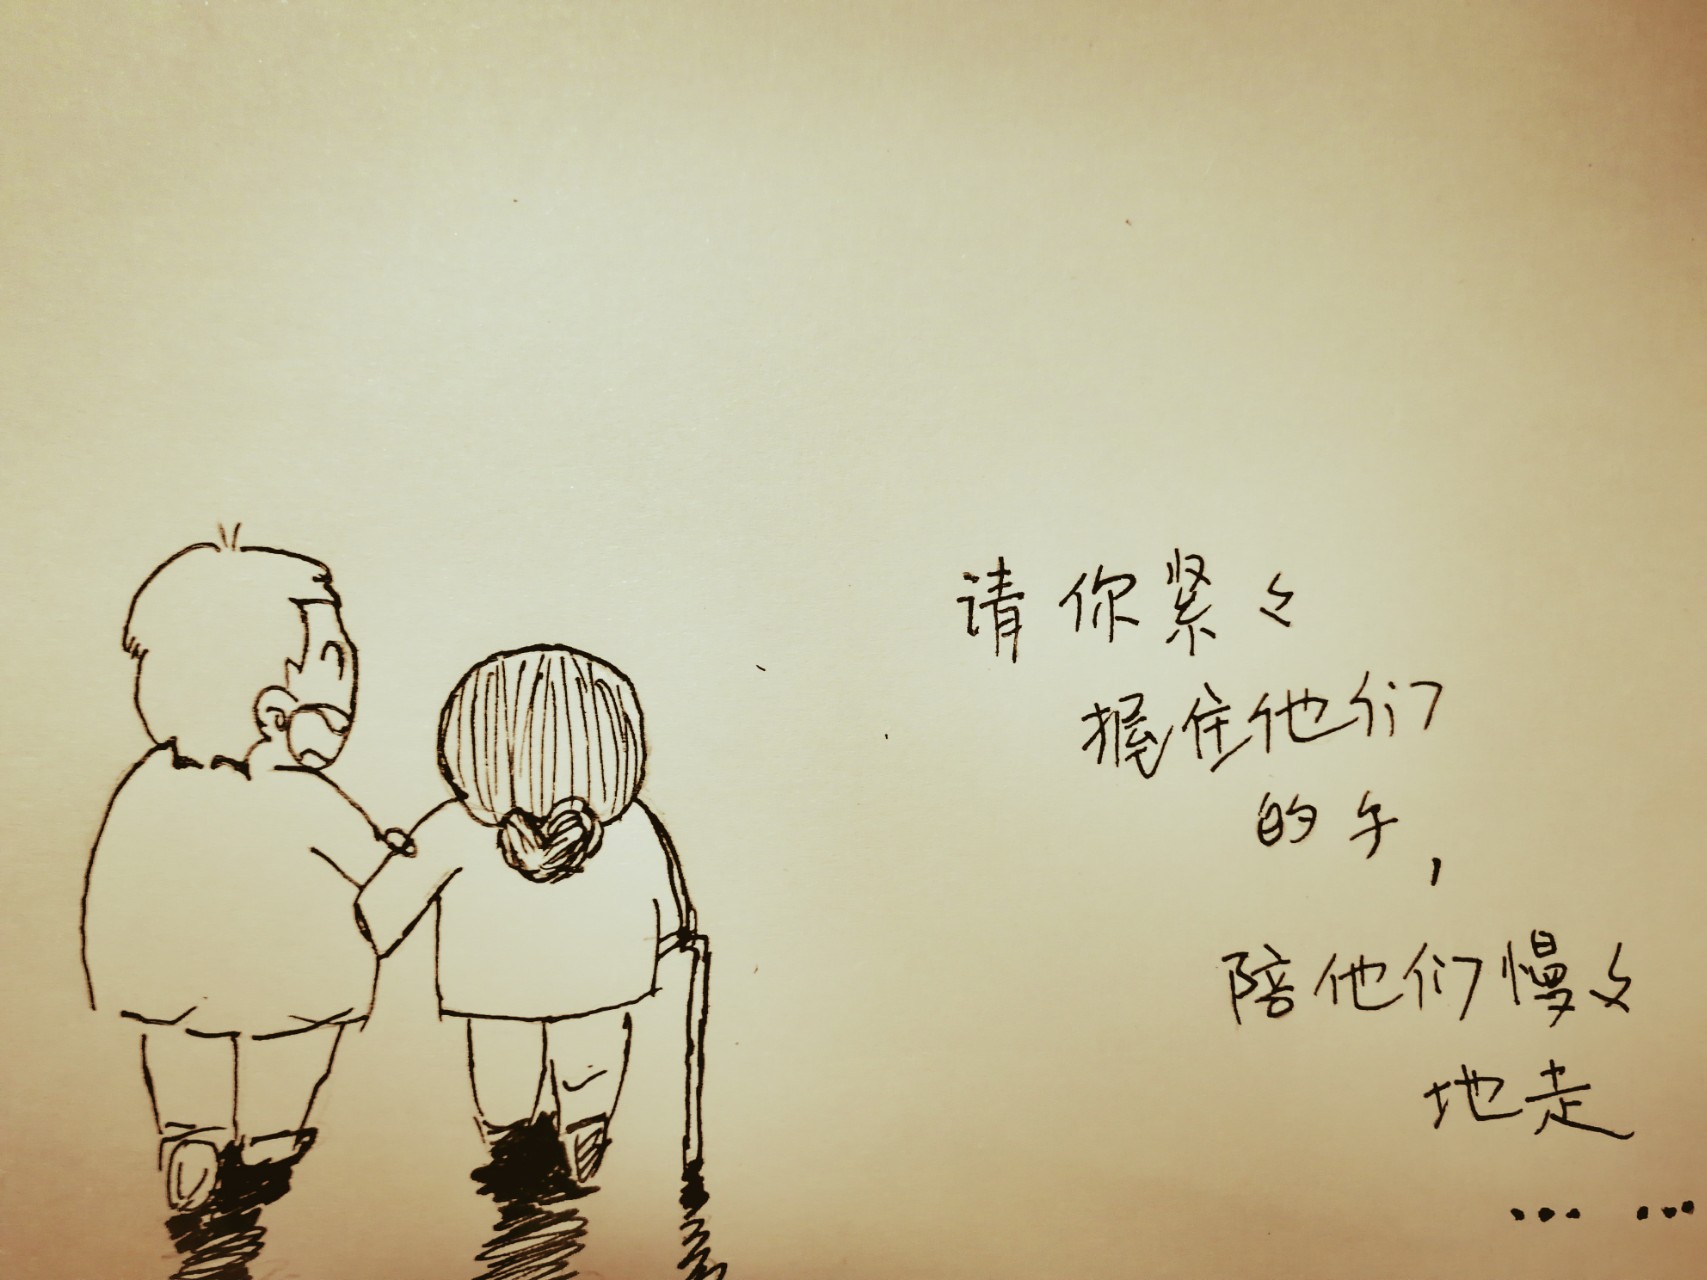 请你紧々
握住他们
的手，
陪他们慢々
地走
……